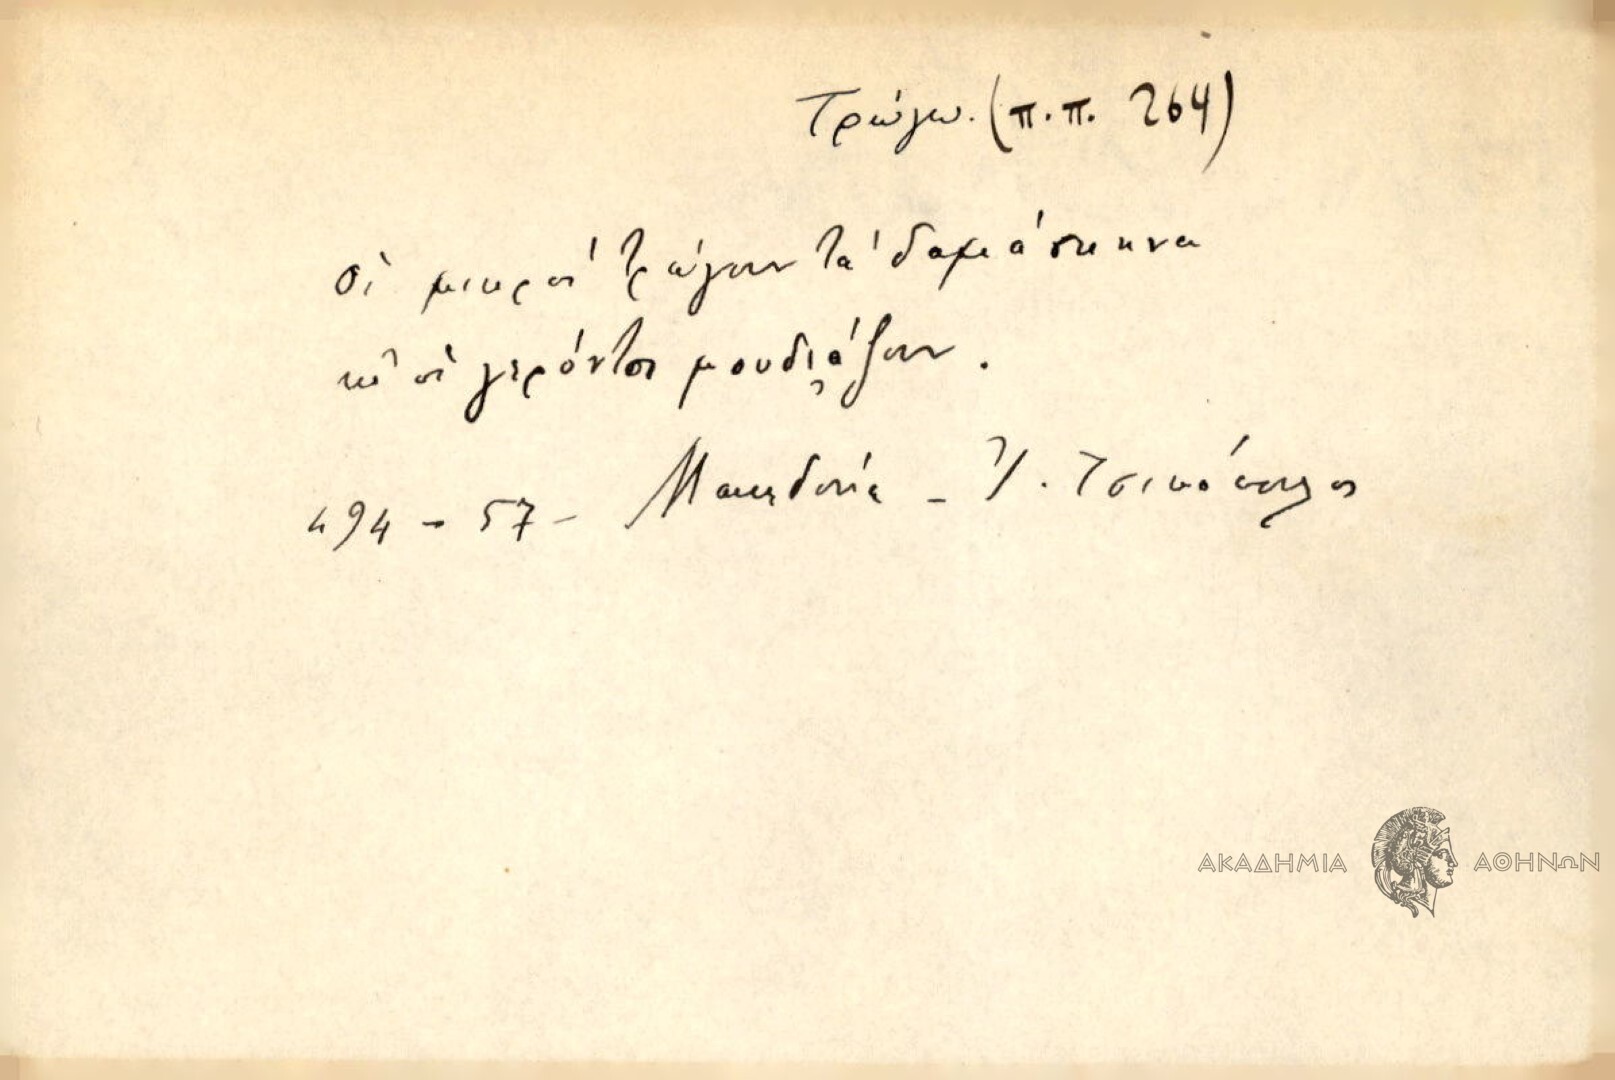 Τρώγω. (π.π. 264)
Οἱ μικροὶ τρώγουν τὰ δαμάσκηνα
κι' οἱ γερόντοι μουδιάζουν.
494 - 57 - Μακεδονία - Ἰ. Τσικόπουλος
ΑΚΑΔΗΜΙΑ ΑΘΗΝΩΝ